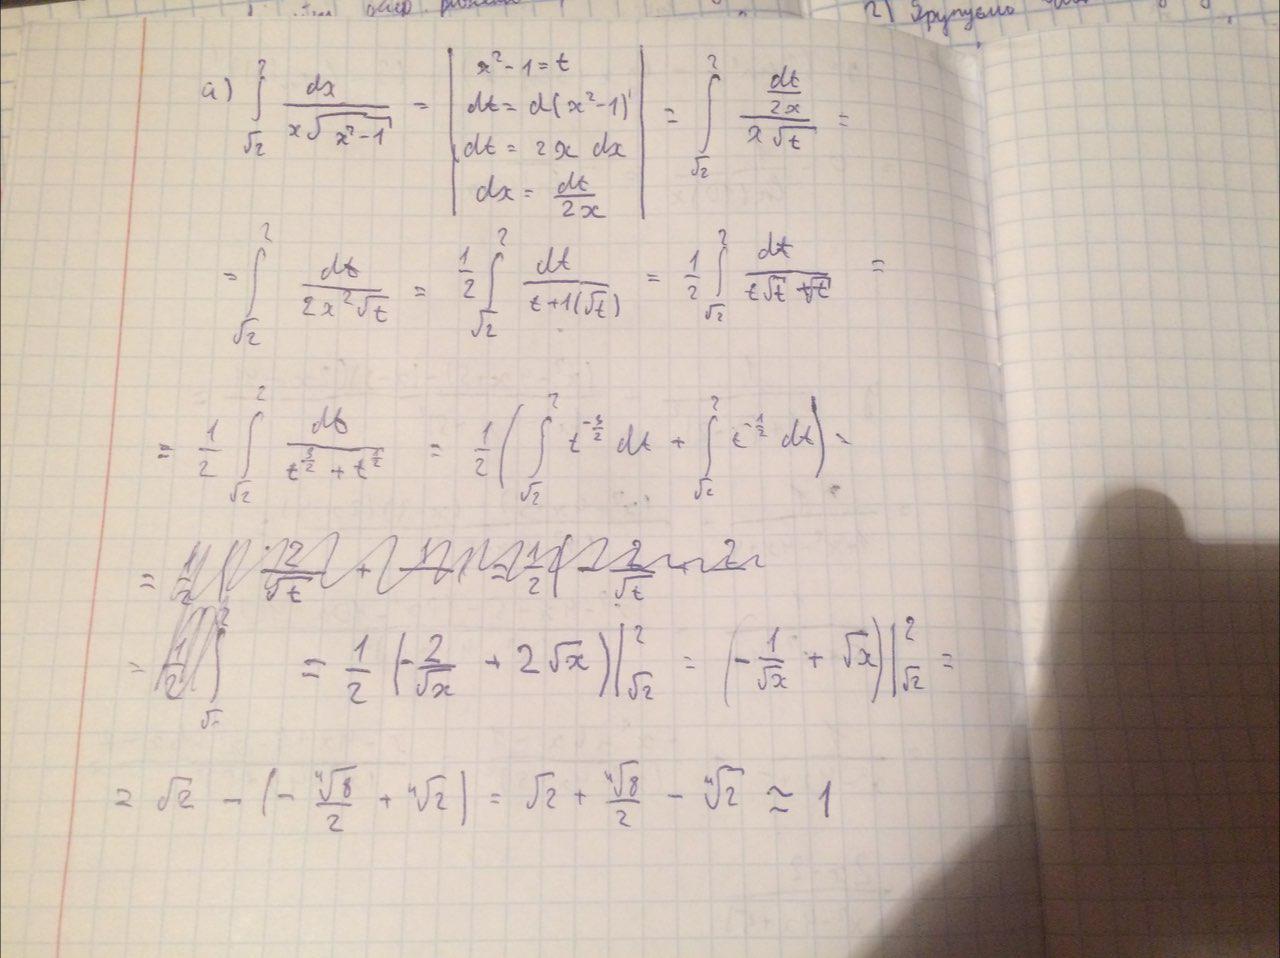 2) Групуємо
а) ∫_{√2}^{2} dx / (x√(x²-1)) = | x²-1=t ; dt = d(x²-1) ; dt = 2x dx ; dx = dt/2x | = ∫_{√2}^{2} (dt/2x) / (x√t) =
= ∫_{√2}^{2} dt / (2x²√t) = 1/2 ∫_{√2}^{2} dt / (t+1(√t)) = 1/2 ∫_{√2}^{2} dt / (t√t + √t) =
= 1/2 ∫_{√2}^{2} dt / (t^{3/2} + t^{1/2}) = 1/2 ( ∫_{√2}^{2} t^{-3/2} dt + ∫_{√2}^{2} t^{-1/2} dt ) =
= 1/2 (-2/√x + 2√x) |_{√2}^{2} = (-1/√x + √x) |_{√2}^{2} =
= √2 - (- ⁴√8/2 + ⁴√2) = √2 + ⁴√8/2 - ⁴√2 ≃ 1